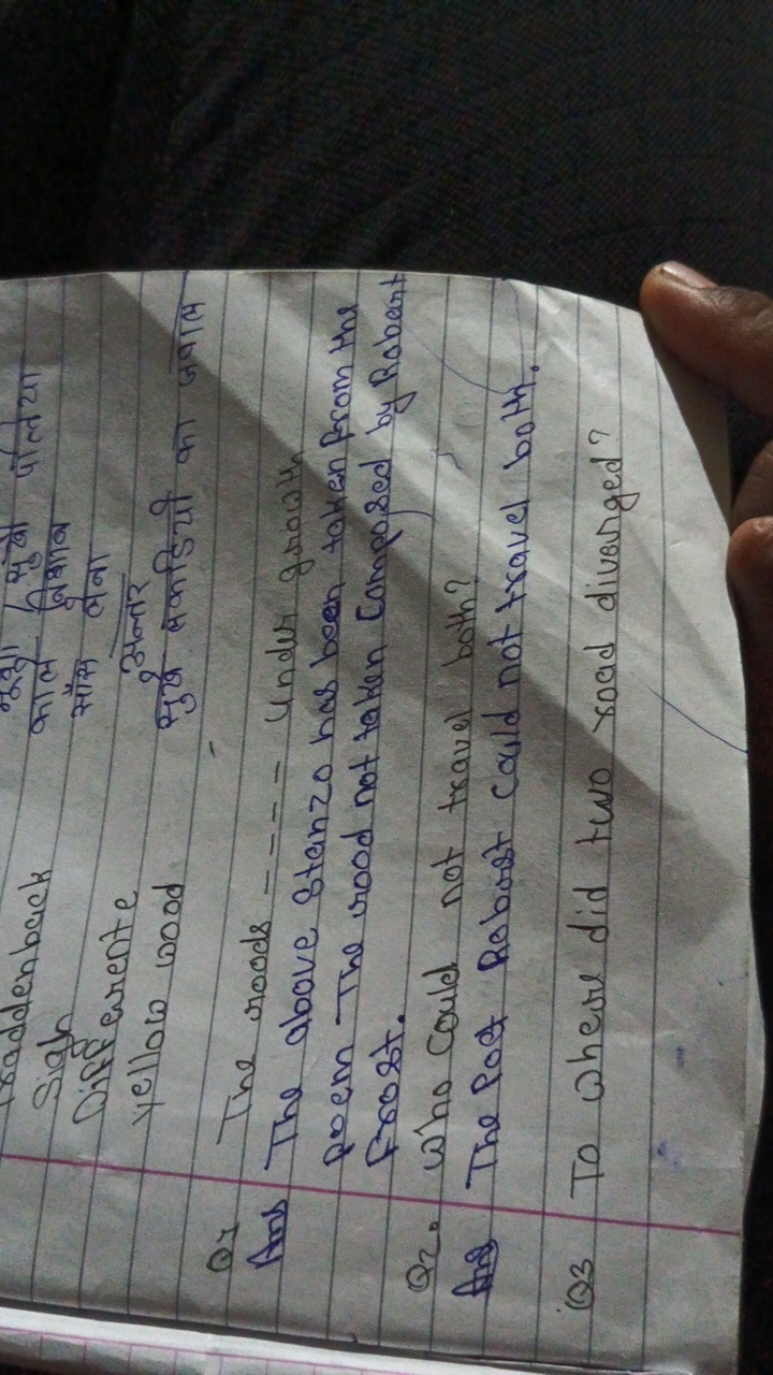 Traddenback काले निशान
Sigh साँस लेना
Differente अन्तर
yellow wood सुखे लकडियो का जगल
Q1 The roods ----- Under growth
Ans The above Stanzo has been taken from the
poem - The rood not taken Composed by Robert
Frost.
Q2. Who could not travel both?
Ans The Poet Robirst could not travel both.
Q3 To where did two road divarged?